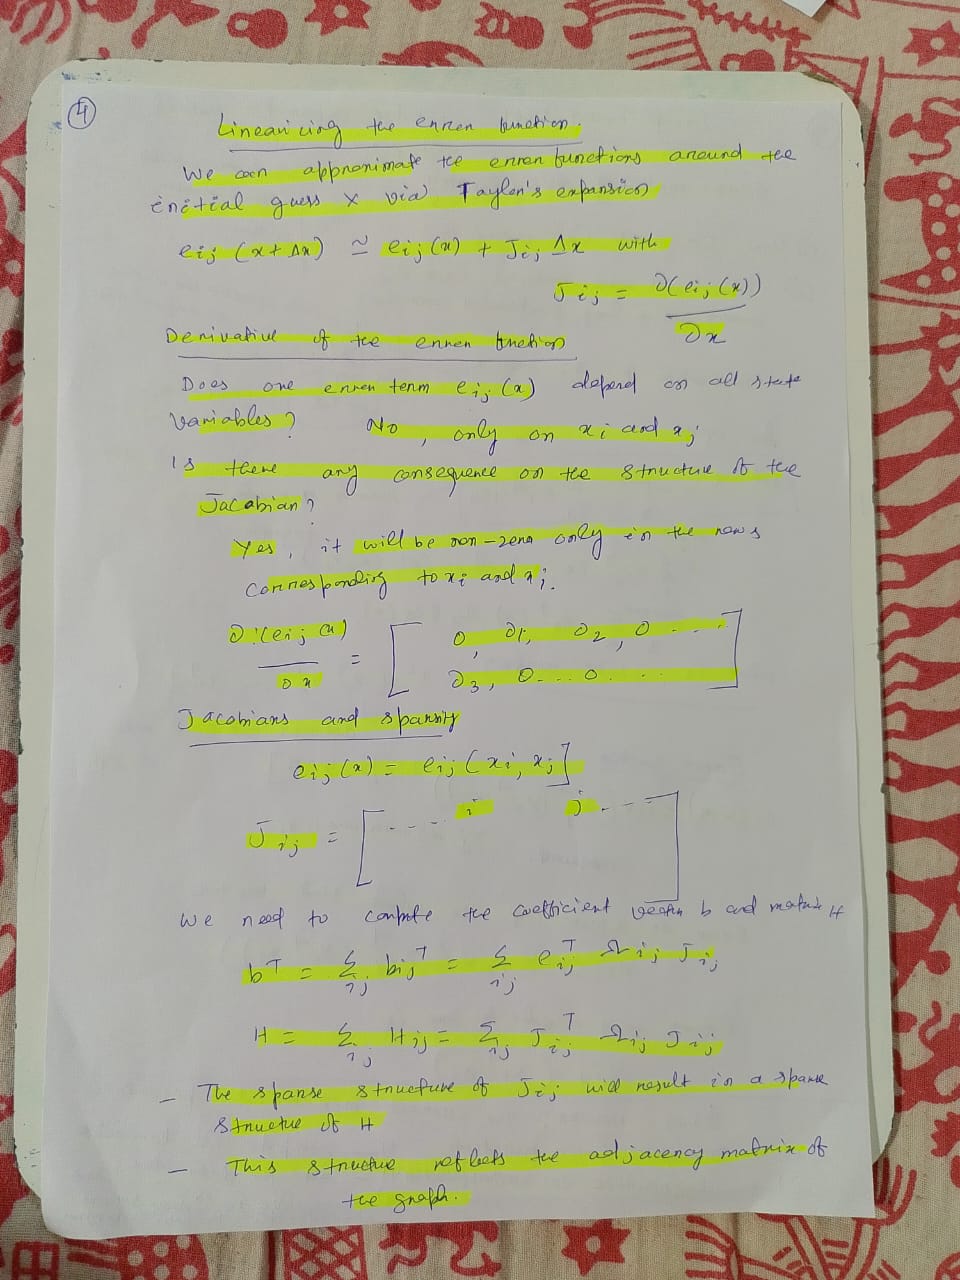 4
Linearizing the error function.
We can approximate the error functions around the
initial guess x via Taylor's expansion
eij (x+Δx) ≃ eij(x) + Jij Δx with
Jij = ∂(eij(x))
∂x
Derivative of the error function
Does one error term eij(x) depend on all state
variables? No, only on xi and xj
Is there any consequence on the structure of the
Jacobian?
Yes, it will be non-zero only in the rows
corresponding to xi and xj.
∂(eij(x)
∂x
= [ 0, ∂1, ∂2, 0 ---
∂3, 0...0... ]
Jacobians and sparsity
eij(x) = eij(xi, xj]
Jij = [ ---- i j ---- ]
We need to compute the coefficient vector b and matrix H
bT = Σij bijT = Σij eijT Ωij Jij
H = Σij Hij = Σij JijT Ωij Jij
- The sparse structure of Jij will result in a sparse
structue of H
- This structue reflects the adjacency matrix of
the graph.